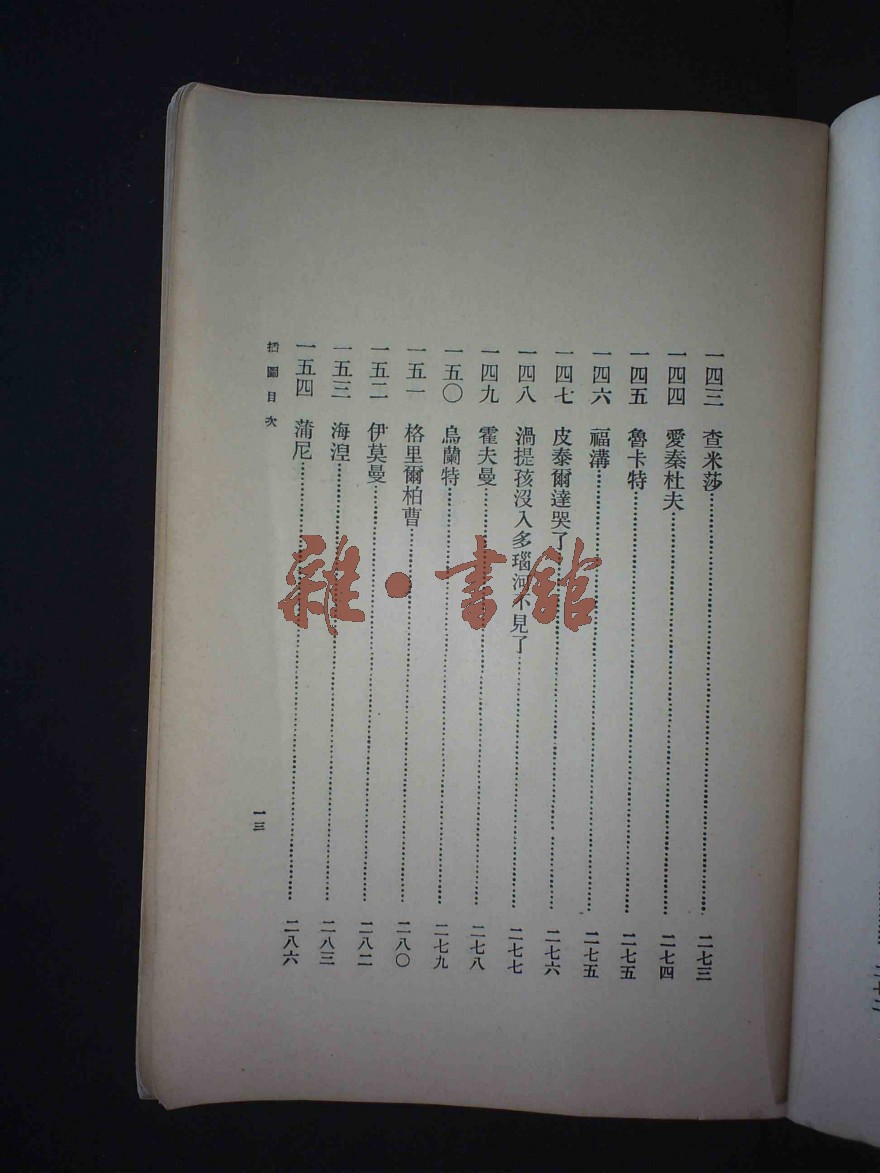 一四三 查米莎……二七三
一四四 愛秦杜夫……二七四
一四五 魯卡特……二七五
一四六 福溝……二七五
一四七 皮泰爾達哭了……二七六
一四八 渦提孩沒入多瑙河不見了……二七七
一四九 霍夫曼……二七八
一五〇 烏蘭特……二七九
一五一 格里爾柏曹……二八〇
一五二 伊莫曼……二八二
一五三 海湼……二八三
一五四 蒲尼……二八六
插圖目次
一三
雜·書館